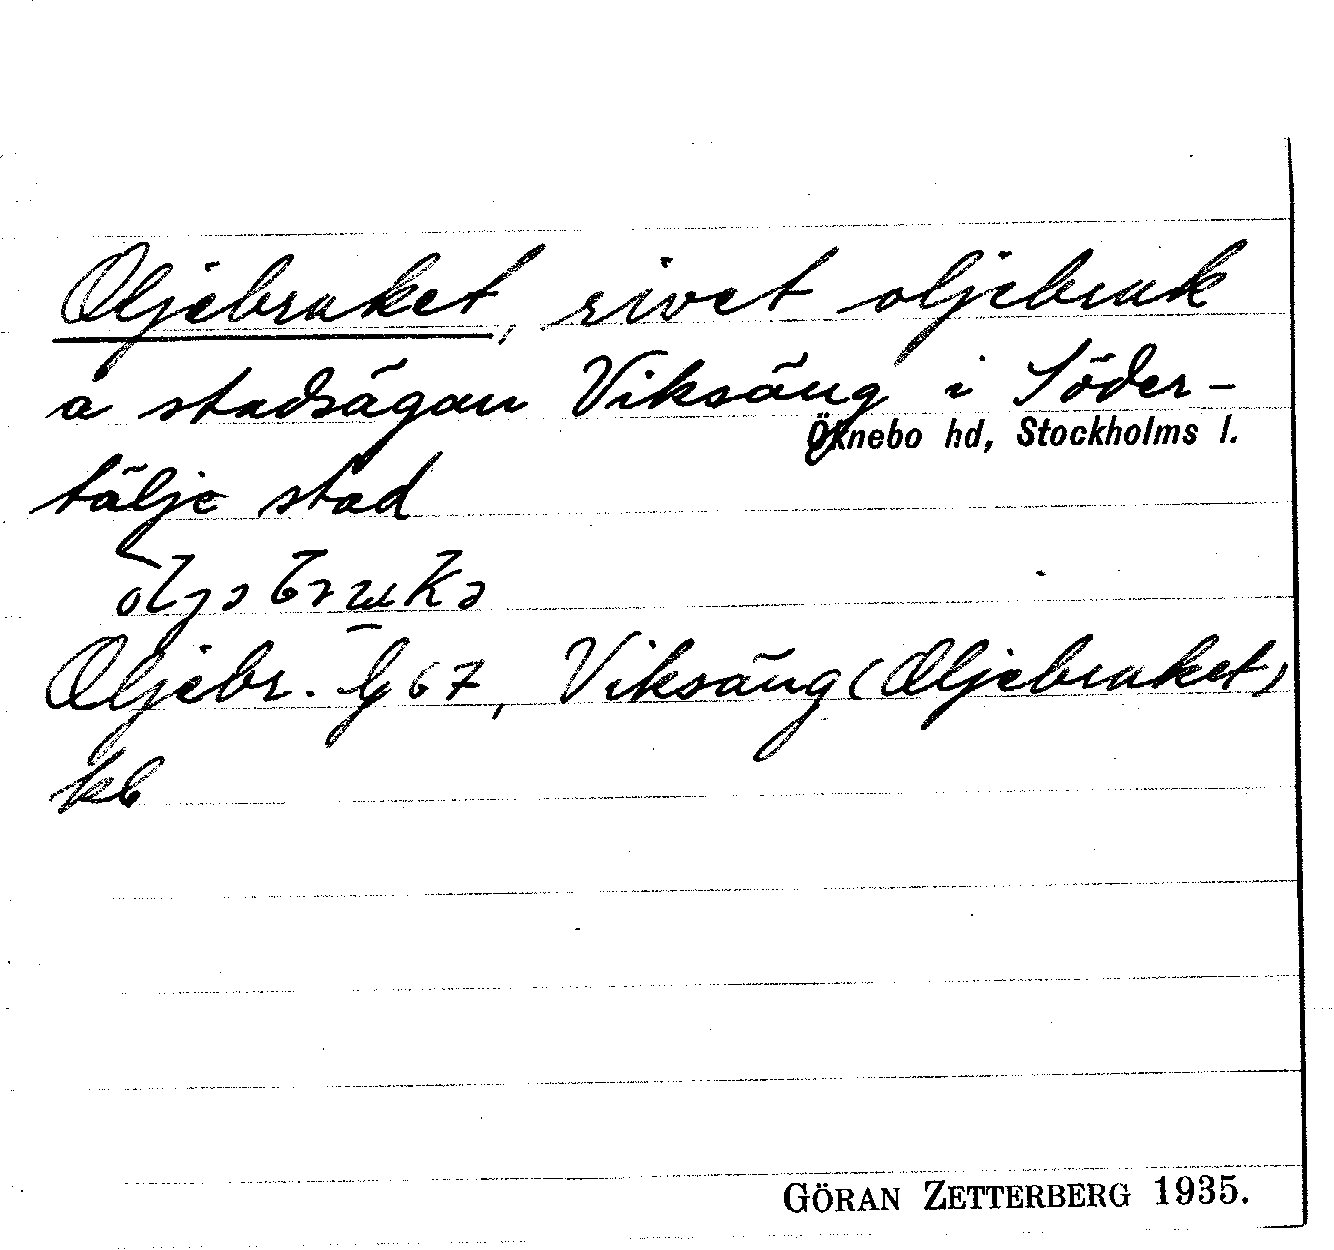 Oljebruket, rivet oljebruk
å stadsägan Viksäng i Söder-
Öknebo hd, Stockholms l.
tälje stad
Oljebr. G 67, Viksäng (Oljebruket)
kb
GÖRAN ZETTERBERG 1935.